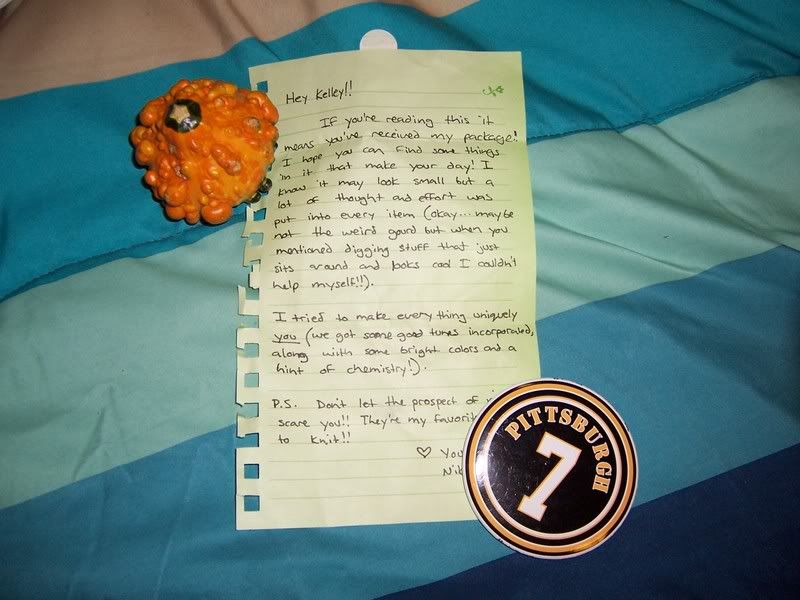 Hey Kelley!!
If you're reading this it
means you've received my package!
I hope you can find some things
in it that make your day! I
know it may look small but a
lot of thought and effort was
put into every item (okay... maybe
not the weird gourd but when you
mentioned digging stuff that just
sits around and looks cool I couldn't
help myself!!).
I tried to make everything uniquely
you (we got some good tunes incorporated,
along with some bright colors and a
hint of chemistry!).
P.S. Don't let the prospect of
scare you!! They're my favorite
to knit!!
♡
PITTSBURGH
7